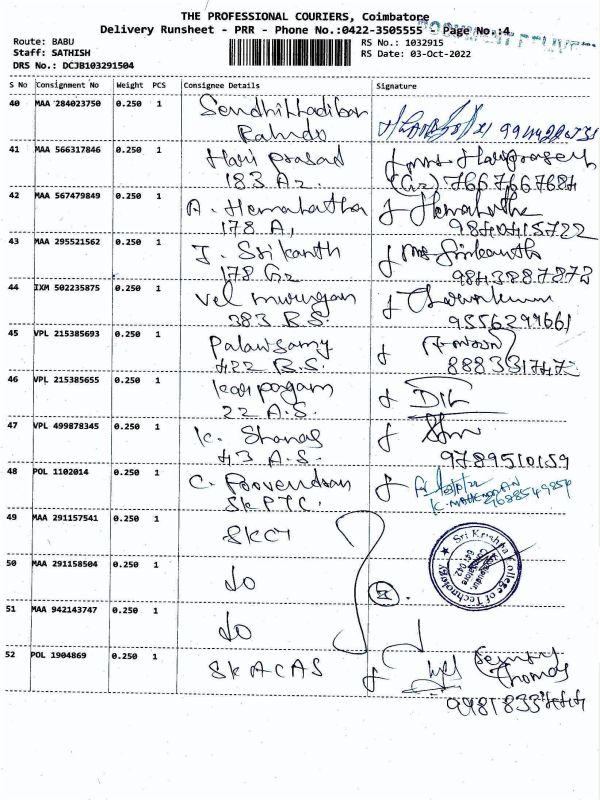 THE PROFESSIONAL COURIERS, Coimbatore
Delivery Runsheet - PRR - Phone No.:0422-3505555 Page No.:4
Route: BABU RS No.: 1032915
Staff: SATHISH RS Date: 03-Oct-2022
DRS No.: DCJB103291504
S No Consignment No Weight PCS Consignee Details Signature
40 MAA 284023750 0.250 1
41 MAA 566317846 0.250 1 Hari prasad
183 A2. 7667667687
42 MAA 567479849 0.250 1 A. Hemalatha Hemalatha
178 A, 9840415722
43 MAA 295521562 0.250 1 J. Srikanth
178 G2 9843887873
44 IXM 502235875 0.250 1 Vel murugan
383 B.S. 9556299661
45 VPL 215385693 0.250 1 Palawsamy
422 B.S.
46 VPL 215385655 0.250 1 karpagam
22 A.S.
47 VPL 499878345 0.250 1 K.
43 A.S. 9789510159
48 POL 1102014 0.250 1 C. Poovendran
SKPTC.
49 MAA 291157541 0.250 1 SKCT
50 MAA 291158504 0.250 1 do
51 MAA 942143747 0.250 1 do
Sri Krishna College of Technology
Coimbatore
641 042
52 POL 1904869 0.250 1 SKACAS
Thomas